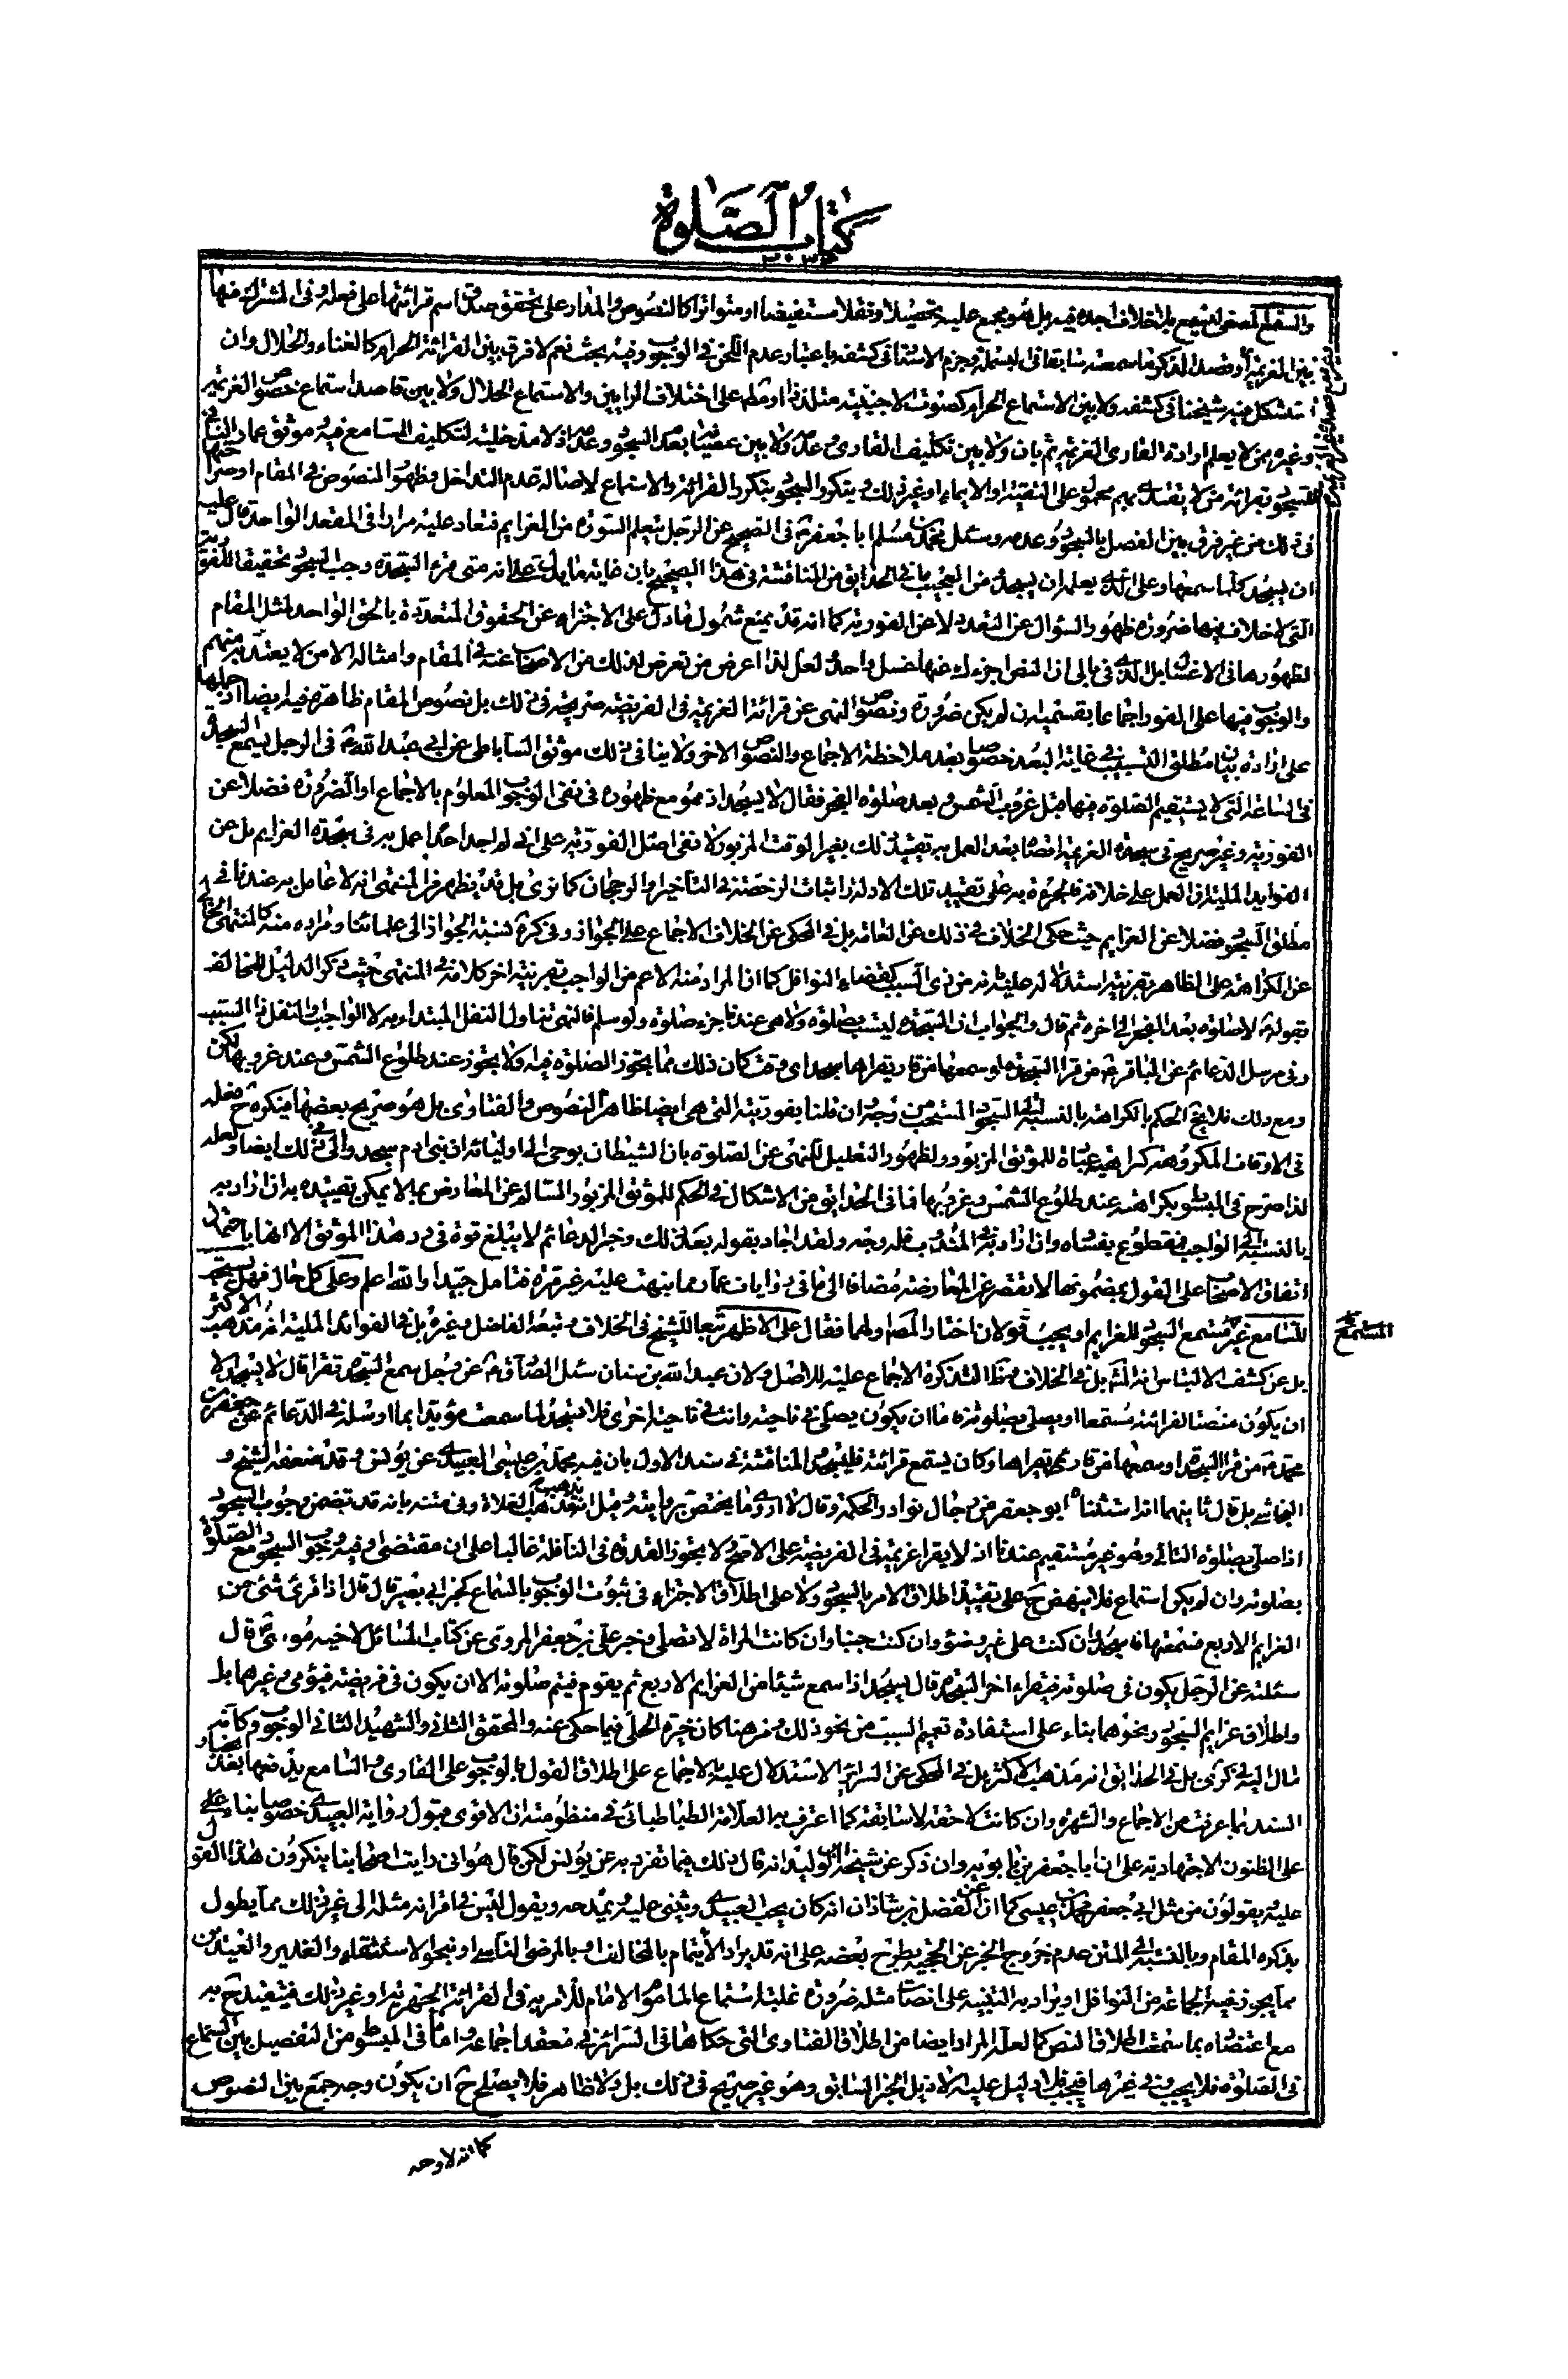 كتاب الصلوة
والمستمع المصغي للسمع بلا خلاف اجده فيه بل هو مجمع عليه تحصيلا ونقلا مستفيضا او متواترا كالنصوص والمدار على تحقق صدق اسم قرائتها على فعله وفي المشترك منها
بين العزيمة قصد الذكر ما سمعته سابقا في البسملة وجزم الاستاد في كشفه باعتبار عدم اللحن في الوجوب وفيه بحث نعم لا فرق بين القرائة الحرام كالغناء والحلال وان
استشكل فيه شيخنا في كشفه ولا بين الاستماع الحرام كصوت الاجنبية متلذذا او مطلقا على اختلاف الرايين والاستماع الحلال ولا بين قاصد استماع خصوص العزيمة
وغيره من لا يعلم ارادة القاري العزيمة ثم بان ولا بين تكليف القاري وعدمه ولا بين عصيانه بعدم السجود وعدمه اذ لا مدخلية لتكليف السامع فيه وموثق عمار النافي
للسجود بقرائة من لا يقتدى بهم محمول على التقية او الايماء او غير ذلك ويتكرر السجود بتكرر القرائة والاستماع لاصالة عدم التداخل وظهور النصوص في المقام او صراحتها
في ذلك من غير فرق بين الفصل بالسجود وعدمه وسئل محمد بن مسلم ابا جعفر في الصحيح عن الرجل يتعلم السورة من العزايم فتعاد عليه مرارا في المقعد الواحد قال عليه
ان يسجد كلما سمعها وعلى الذي يعلمه ان يسجد ومن العجيب ما في الحدائق من المناقشة في هذا الصحيح بان غاية ما يدل عليه انه متى قرء السجدة وجب السجود تحقيقا للفورية
التي لا خلاف فيها ضرورة ظهور السؤال عن التعدد لا عن الفورية كما انه قد يمنع شمول ما دل على الاجتزاء عن الحقوق المتعددة بالحق الواحد لمثل المقام
لظهورها في الاغسال بل الذي في بالي ان النص اجزءك عنها غسل واحد ولعل لذا اعرض من تعرض لذلك من الاصحاب عنه في المقام وامثاله الا من لا يعتد به منهم
والوجوب فيها على الفور اجماعا بقسميه ان لم يكن ضرورة ونصوص النهي عن قرائة العزيمة في الفريضة صريحة في ذلك بل نصوص المقام ظاهرة فيه ايضا اذ حملها
على ارادة بيان مطلق التسبيب في غاية البعد خصوصا بعد ملاحظة الاجماع والنصوص الاخر ولا ينافي ذلك موثق الساباطي عن ابي عبد الله في الرجل يسمع السجدة
في الساعة التي لا يستقيم الصلوة فيها قبل غروب الشمس وبعد صلوة الفجر فقال لا يسجد اذ هو مع ظهوره في نفي الوجوب المعلوم بالاجماع او الضرورة فضلا عن
الفورية وغير صريح في سجدة العزيمة اقصاه بعد العمل به تقييد ذلك بغير الوقت المزبور لا نفي اصل الفورية على اني لم اجد احدا عمل به في سجدة العزايم بل عن
الفوايد الملية ان العمل على خلافه فالجرئة به على تقييد تلك الادلة واثبات الرخصة في التاخير او الرجحان كما ترى بل قد يظهر من المنتهى انه لا عامل به عندنا في
مطلق السجود فضلا عن العزايم حيث حكى الخلاف في ذلك عن العامة بل في المحكي عن الخلاف الاجماع على الجواز وفي كرة نسبة الجواز الى علمائنا ومراده منه كالمنتهى الخالي
عن الكراهة على الظاهر بقرينة استدلاله عليه بانه من ذي السبب كقضاء النوافل كما ان المراد منه الاعم من الواجب بقرينة اخر كلامه في المنتهى حيث ذكر الدليل للمخالف
بقوله لا صلوة بعد الفجر الى اخره ثم قال والجواب ان السجدة ليست بصلوة ولا هي عندنا جزء صلوة ولو سلم فالنهي تناول النفل المبتداء به لا الواجب والنفل ذا السبب
وفي مرسل الدعائم عن الباقر من قرا السجدة او سمعها من قار يقراها سجد اى وقت كان ذلك مما يجوز الصلوة فيه ولا يجوز عند طلوع الشمس وعند غروبها لكن
ومع ذلك فلا يتجه الحكم بالكراهة بالنسبة الى السجود المستحب من وجه ان قلنا بفوريته التي هي ايضا ظاهر النصوص والفتاوى بل هو صريح بعضها فيكره ح فعله
في الاوقات المكروهة كراهة عبادة للموثق المزبور ولظهور التعليل للنهي عن الصلوة بان الشيطان يوحى الى اوليائه ان بني ادم سجدوا لي في ذلك ايضا ولعله
لذا صرح في المبسوط بكراهته عند طلوع الشمس وغروبها فما في الحدائق من الاشكال في الحكم للموثق المزبور السالم عن المعارض بما لا يمكن تقييده به ان اراد به
بالنسبة الى الواجب فمقطوع بفساه وان اراد به في المندوب فله وجه ولقد اجاد بقوله بعد ذلك وخبر الدعائم لا يبلغ قوة في رد هذا الموثق الا انها باعتضاد
اتفاق الاصحاب على القول بمضمونها لا تقصر عن المعارضة مضافا الى ما في روايات عمار مما نبهت عليه غير مرة فتامل جيدا والله اعلم وعلى كل حال فهل يستحب
للسامع غير مستمع السجود للعزايم او يجب قولان اختار المصنف اولهما فقال على الاظهر تبعا للشيخ في الخلاف وتبعه الفاضل وغيره بل في الفوائد الملية انه مذهب الاكثر
المستمع
بل عن كشف الالتباس انه المشهور بل في الخلاف وظاهر التذكرة الاجماع عليه للاصل ولان عبد الله بن سنان سئل الصادق عن رجل سمع السجدة تقرا قال لا يسجد الا
ان يكون منصتا لقرائته مستمعا او يصلي بصلوته فاما ان يكون يصلي في ناحية وانت في ناحية اخرى فلا تسجد لما سمعت مؤيدا بما ارسله في الدعائم عن جعفر بن
محمد من قرا السجدة او سمعها من قارئ يقراها وكان يستمع قرائته فليسجد والمناقشة في سند الاول بان فيه محمد بن عيسى العبيدي عن يونس وقد ضعفه الشيخ و
اذا صلى بصلوة التالي وهو غير مستقيم عندنا اذ لا يقرا عزيمة في الفريضة على الاصح ولا يجوز القدوة في النافلة غالبا على ان مقتضى وفيه وجوب السجود مع الصلوة
بصلوته وان لم يكن استماع فلا ينهض ح على تقييد اطلاق الامر بالسجود ولا على اطلاق الاجتزاء في ثبوت الوجوب بالسماع كخبر ابي بصير قال قال اذا قرئ شئ من
العزايم الاربع فسمعتها فاسجد وان كنت على غير وضوء وان كنت جنبا وان كانت المراة لا تصلي وخبر علي بن جعفر المروي عن كتاب المسائل لاخيه قال
سئلته عن الرجل يكون في صلوته فيقراء اخر السجدة قال يسجد اذا سمع شيئا من العزايم الاربع ثم يقوم فيتم صلوته الا ان يكون في فريضة فيؤمي وغيرها بل
واطلاق عزايم السجود ونحوها بناء على استفادة تعميم السبب من نحو ذلك ومن هنا كان خيرة الحلي فيما حكي عنه والمحقق الثاني والشهيد الثاني الوجوب وكانه
مال اليه في كرى بل في الحدائق انه مذهب الاكثر بل في المحكي عن السرائر الاستدلال عليه بالاجماع على اطلاق القول بالوجوب على القاري والسامع
السند بما عرفت من الاجماع والشهرة وان كانت لاحقة لا سابقة كما اعترف به العلامة الطباطبائي في منظومته ان الاقوى قبول رواية العبيدي خصوصا بناء على
على الظنون الاجتهادية على ان ابا جعفر بن بابويه وان ذكر عن شيخه ابن الوليد انه قال ذلك فيما تفرد به عن يونس لكن قال هو اني رايت اصحابنا ينكرون هذا القول
عليه يقولون من مثل ابي جعفر محمد بن عيسى كما ان عن الفضل بن شاذان انه كان يحب العبيدي ويثني عليه ويمدحه ويقول ليس في اقرانه مثله الى غير ذلك مما يطول
بذكره المقام وبالنسبة الى المتن عدم خروج الخبر عن الحجية بطرح بعضه على انه قد يراد الائتمام بالمخالف او بالمرضي الناسي او نحو الاستسقاء والغدير والعيدين
مما يجوز فيه الجماعة من النوافل او يراد به التنبيه على انصات مثله ضرورة غلبة استماع الماموم الامام للامر به في القرائة الجهرية او غير ذلك فيتقيد ح به
مع اعتضاه بما سمعت اطلاق النص كما لعله المراد ايضا من اطلاق الفتاوى التي حكاها في السرائر في معقد اجماعه واما ما في المبسوط من التفصيل بين السماع
في الصلوة فلا يجب وفي غيرها فيجب فلا دليل عليه الا ذيل الخبر السابق وهو غير صريح في ذلك بل ولا ظاهر فلا يصلح ح ان يكون وجه جمع بين النصوص
كما انه لا وجه